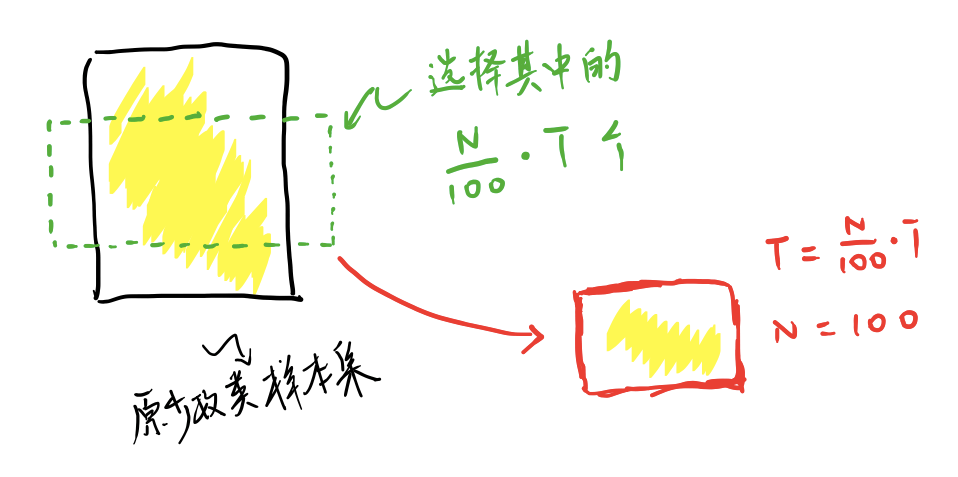 选择其中的
N/100 · T 个
T = N/100 · T
N = 100
原少数类样本集